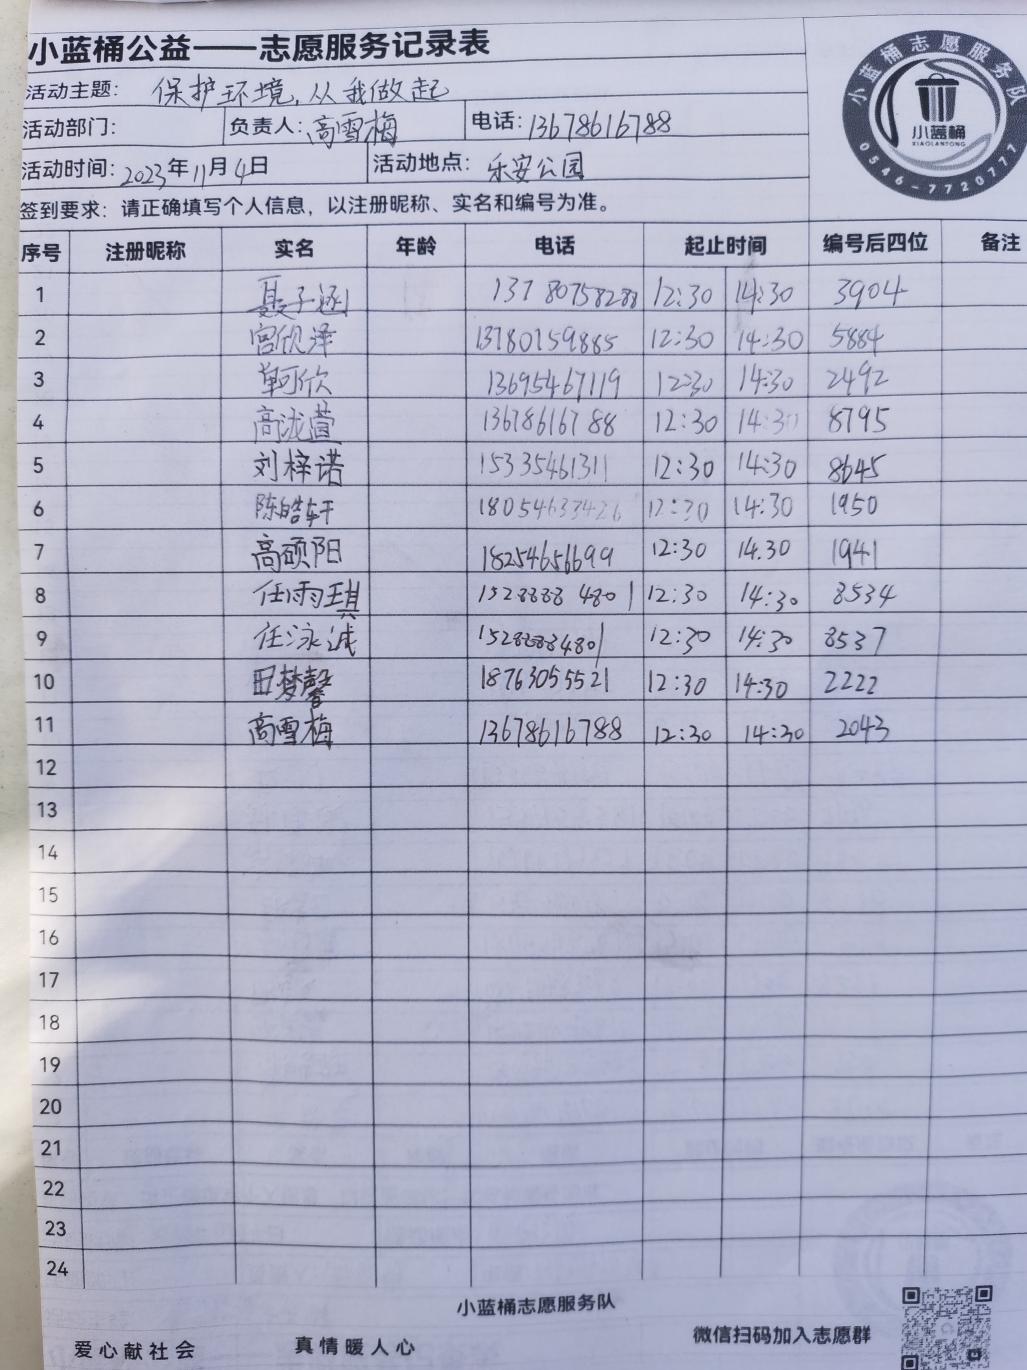 小蓝桶公益——志愿服务记录表
活动主题: 保护环境,从我做起
活动部门: 负责人: 高雪梅 电话: 13678616788
活动时间: 2023年11月4日 活动地点: 乐安公园
签到要求: 请正确填写个人信息, 以注册昵称、实名和编号为准。
小蓝桶志愿服务队
小蓝桶
XIAOLANTONG
0546-7720777
序号 注册昵称 实名 年龄 电话 起止时间 编号后四位 备注
1 聂子涵 13780758288 12:30 14:30 3904
2 宫欣泽 13780759885 12:30 14:30 5884
3 单珂欣 13695467119 12:30 14:30 2492
4 高泷萱 13678616788 12:30 14:30 8795
5 刘梓诺 15335461311 12:30 14:30 8645
6 陈皓轩 18054633426 12:30 14:30 1950
7 高硕阳 18254656699 12:30 14.30 1941
8 任雨琪 15288884801 12:30 14:30 8534
9 任泳诚 15288884801 12:30 14:30 8537
10 田梦馨 18763055521 12:30 14:30 2222
11 高雪梅 13678616788 12:30 14:30 2043
12
13
14
15
16
17
18
19
20
21
22
23
24
小蓝桶志愿服务队
爱心献社会 真情暖人心 微信扫码加入志愿群